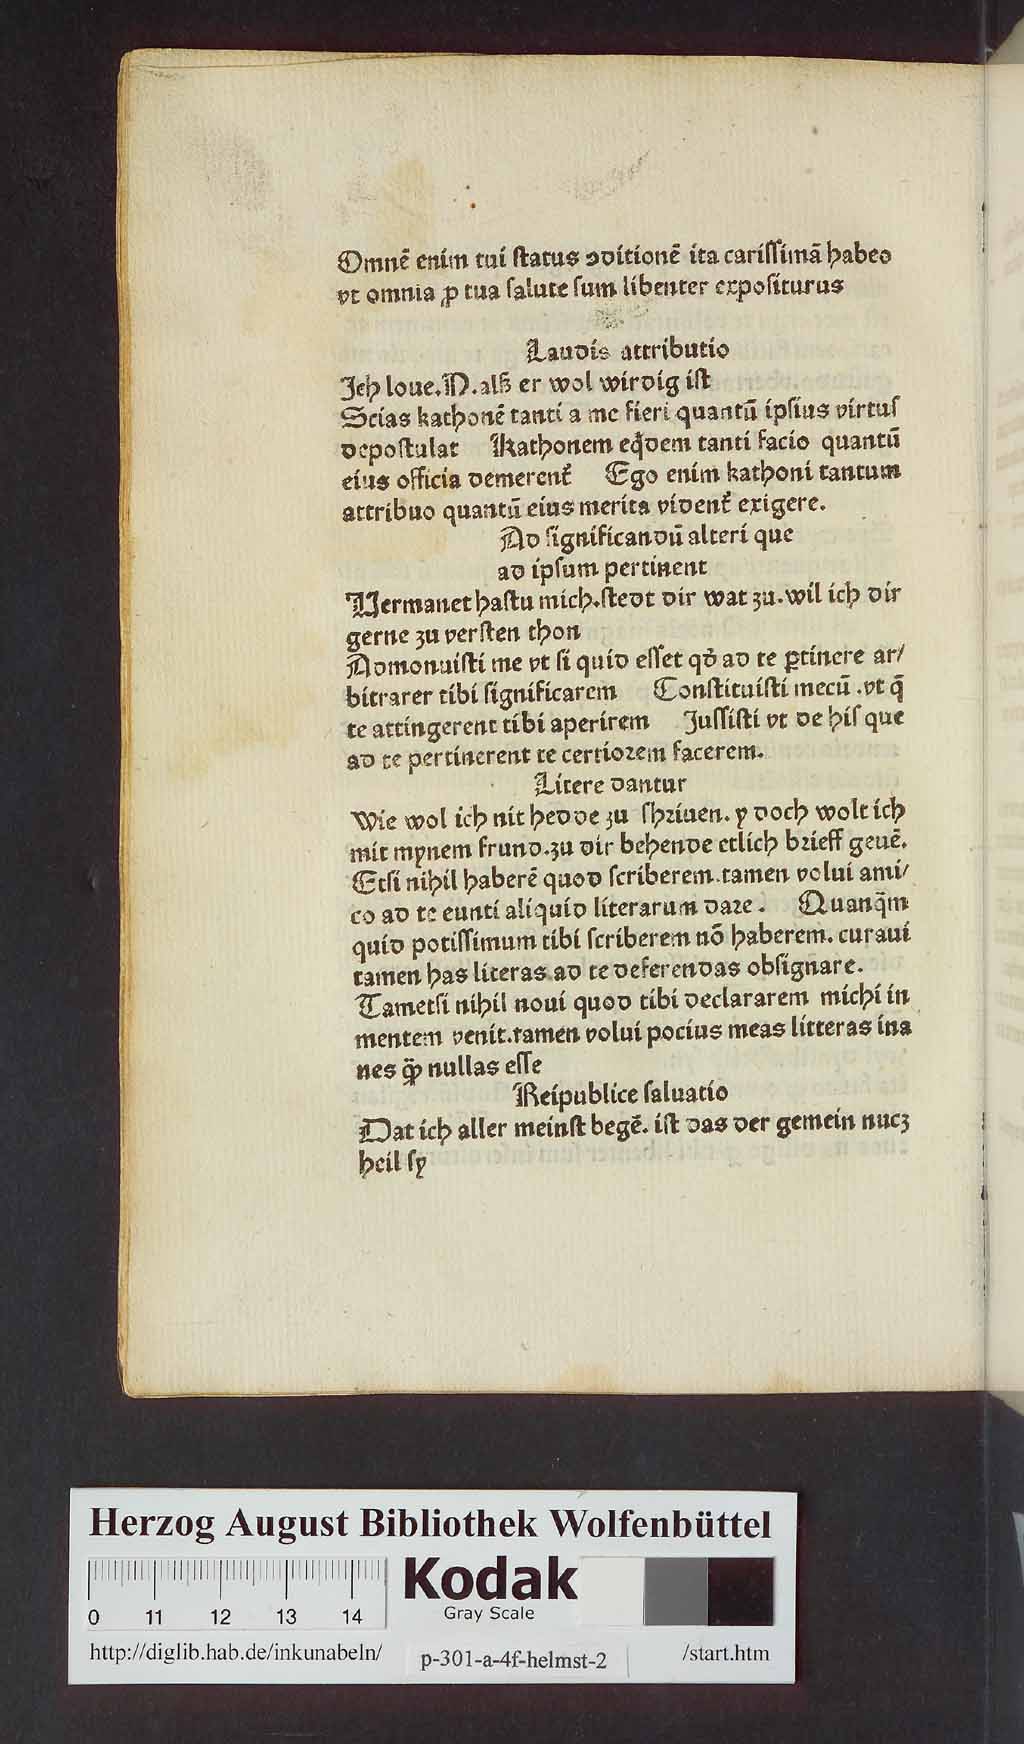 Omnē enim tui ſtatus ↄditionē ita cariſſimā habeo
vt omnia ꝓ tua ſalute ſum libenter expoſiturus
Laudis attributio
Ich loue.N.alſʒ er wol wirdig iſt
Scias kathonē tanti a me fieri quantū ipſius virtuſ
depoſtulat Kathonem eq̇dem tanti facio quantū
eius officia demerent᷑ Ego enim kathoni tantum
attribuo quantū eius merita vident᷑ exigere.
Ad ſignificandū alteri que
ad ipſum pertinent
Vermanet haſtu mich.ſtedt dir wat zu.wil ich dir
gerne zu verſten thon
Admonuiſti me vt ſi quid eſſet qḋ ad te ꝑtinere ar/
bitrarer tibi ſignificarem Conſtituiſti mecū .vt q̄
te attingerent tibi aperirem Juſſiſti vt de hiſ que
ad te pertinerent te certioꝛem facerem.
Litere dantur
Wie wol ich nit hedde zu ſhꝛiuen. y doch wolt ich
mit mynem frund.zu dir behende etlich bꝛieff geuē.
Etſi nihil haberē quod ſcriberem.tamen volui ami/
co ad te eunti aliquid literarum daꝛe . Quanq̄m
quid potiſſimum tibi ſcriberem nō haberem. curaui
tamen has literas ad te deferendas obſignare.
Tametſi nihil noui quod tibi declararem michi in
mentem venit.tamen volui pocius meas litteras ina
nes q̄ꝫ nullas eſſe
Reipublice ſaluatio
Dat ich aller meinſt begē. iſt das der gemein nucz
heil ſy
Herzog August Bibliothek Wolfenbüttel
Kodak
Gray Scale
0 11 12 13 14
http://diglib.hab.de/inkunabeln/ p-301-a-4f-helmst-2 /start.htm